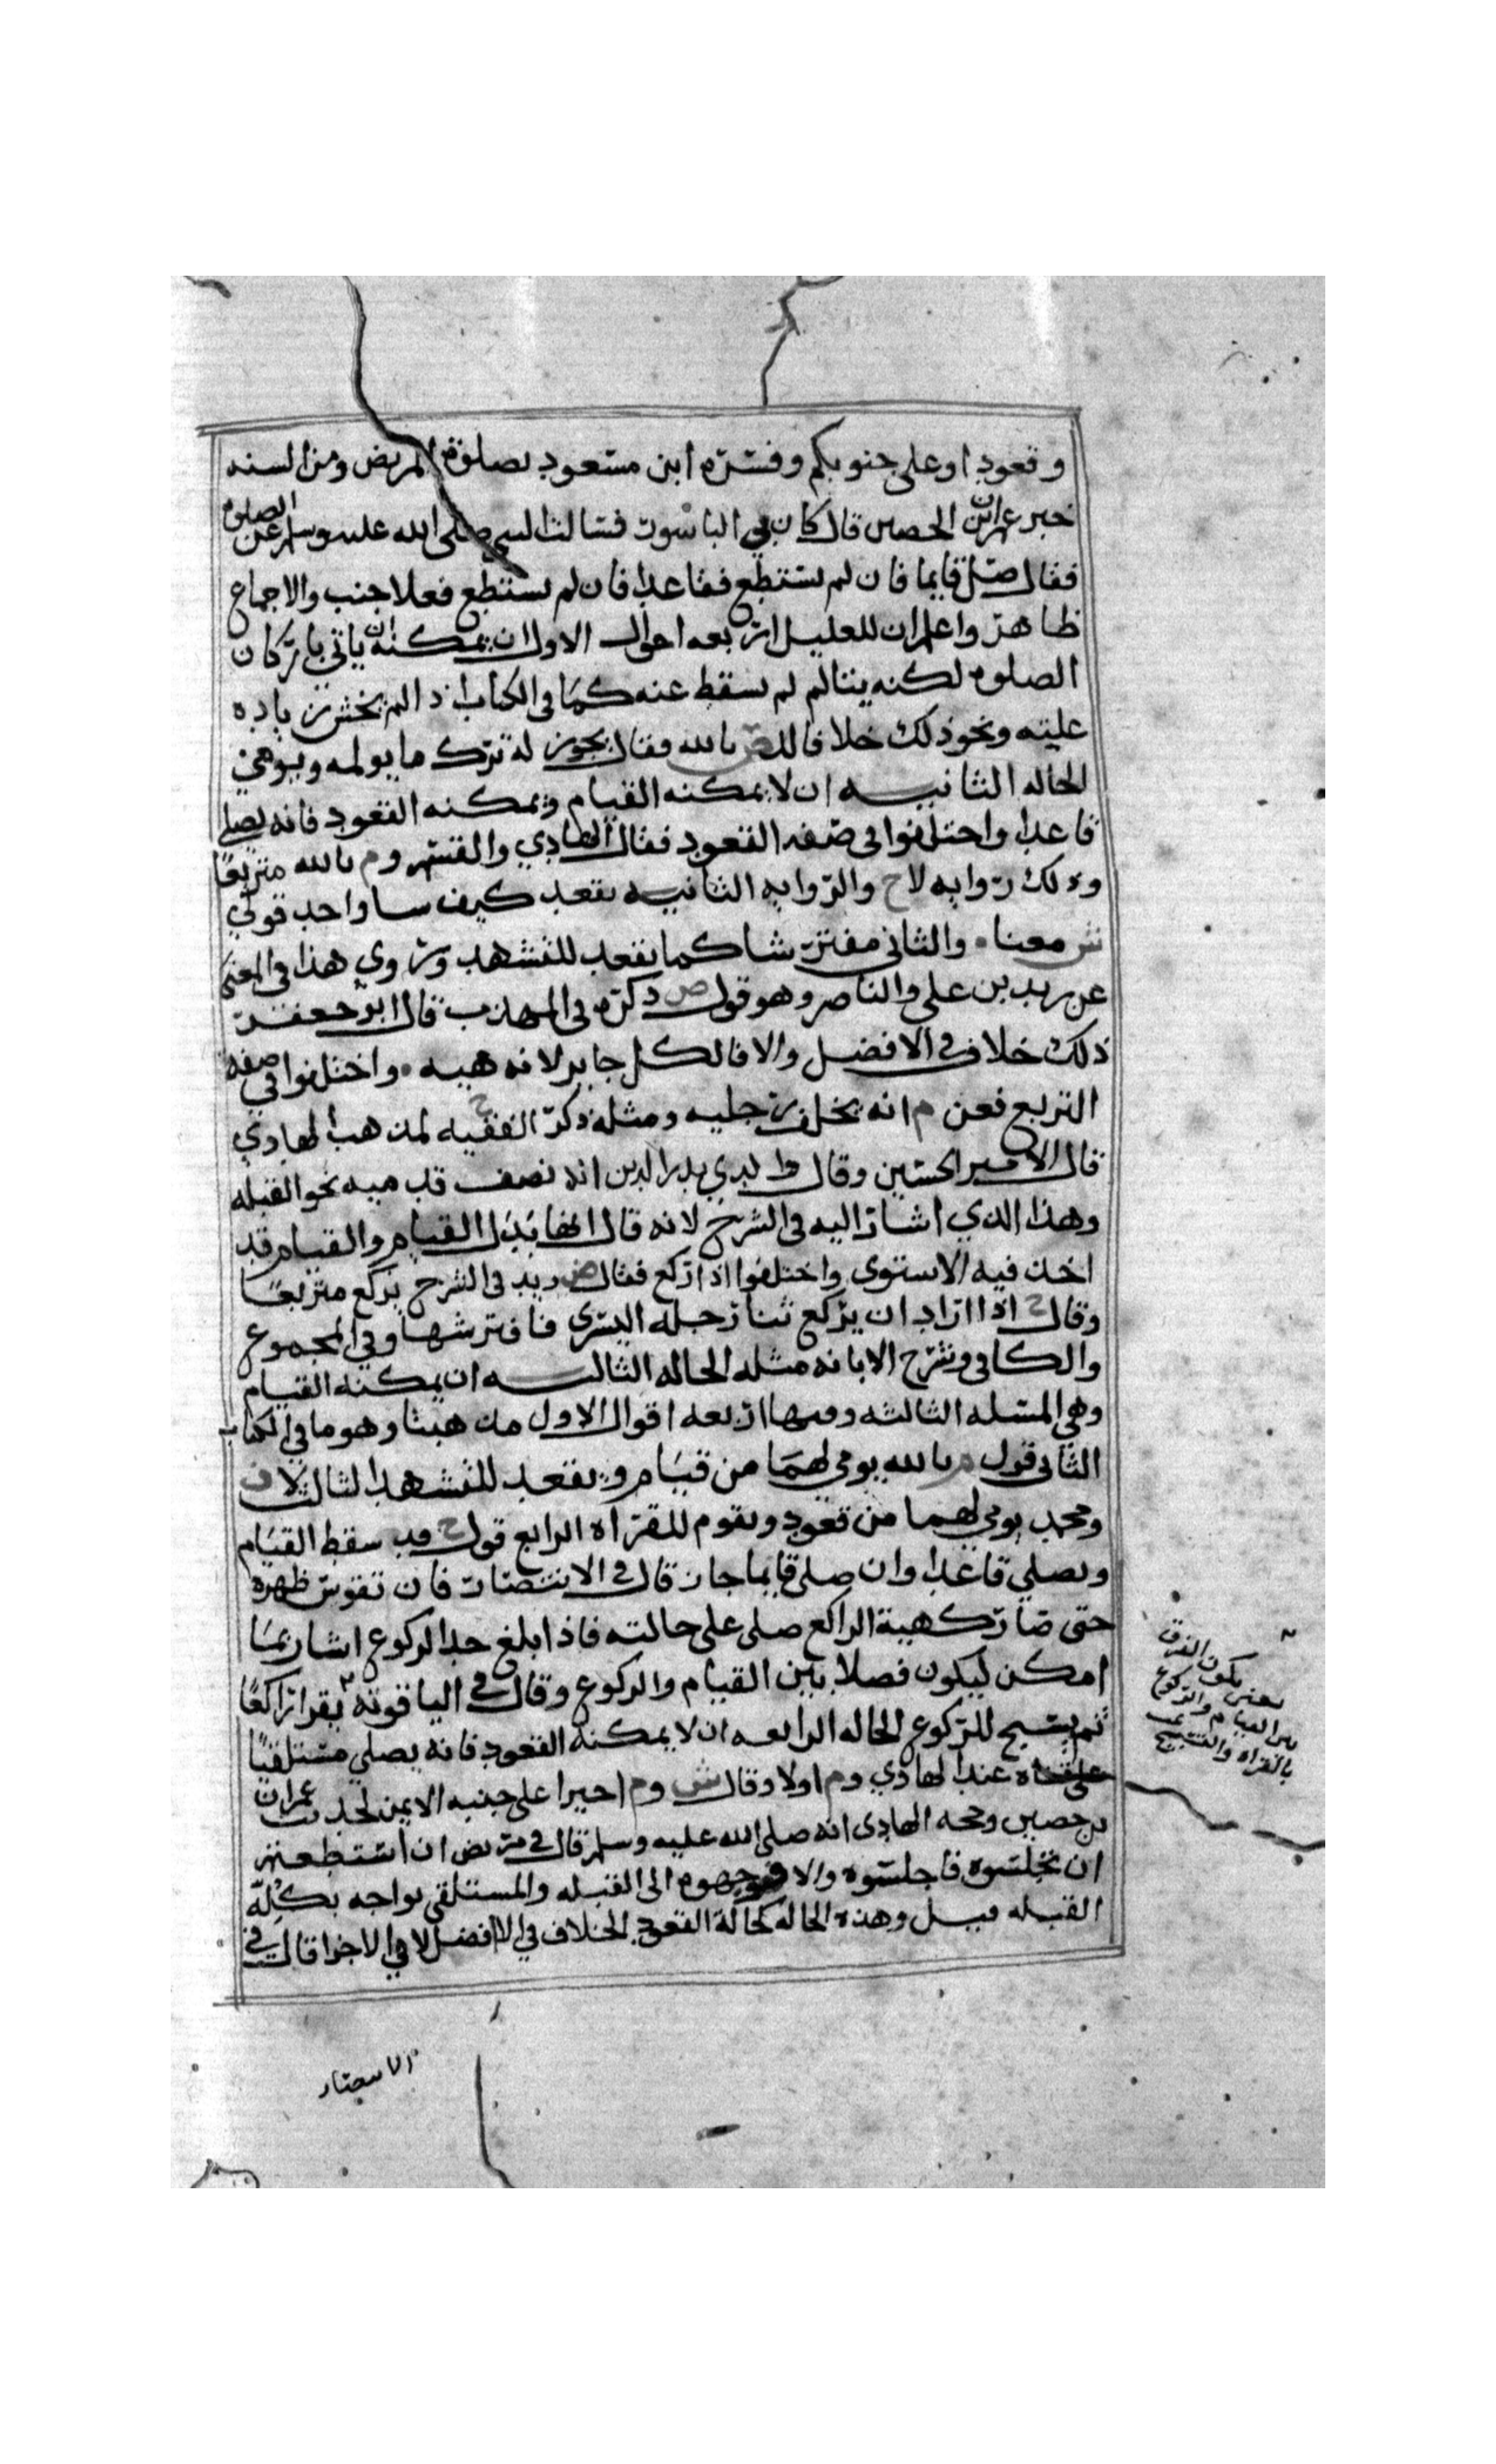 وقعودا وعلى جنوبكم وفسره ابن مسعود بصلوة المريض ومن السنه
خبر عمران ابن الحصين قال كان بي الباسوت فسالت النبي صلى الله عليه وسلم عن الصلوه
فقال صل قايما فان لم تستطع فقاعدا فان لم تستطع فعلا جنب والاجماع
ظاهر واعلم ان للعليل اربعه احوال الاول ان يمكنه ان ياتي باركان
الصلوه لكنه يتالم لم تسقط عنه كما في الكتاب اذا لم يخش زياده
عليته ونحو ذلك خلافا للص بالله فقال يجوز له ترك ما يولمه ويومي
الحاله الثانيه ان لا يمكنه القيام ويمكنه القعود فانه يصلي
قاعدا واختلفوا في صفه القعود فقال الهادي والقسم وم بالله متربعا
وذلك روايه لاح والروايه الثانيه يقعد كيف سا واحد قولي
ش معنا والثاني مفترشا كما يقعد للتشهد وروي هذا في المعنى
عن زيد بن علي والناصر وهو قول ص ذكره في المهذب قال ابو جعفر
ذلك خلاف في الافضل والا فالكل جايز لانه هيه واختلفوا في صفه
التربع فعن م انه يخلف رجليه ومثله ذكر الفقيه ح لمذهب الهادي
قال الامير الحسين وقال والدي بدر الدين انه نصف قدميه نحو القبله
وهذا الذي اشار اليه في الشرح لانه قال انها بدل القيام والقيام قد
اخذ فيه الاستوى واختلفوا اذا ركع فقال ض زيد في الشرح يركع متربعا
وقال ح اذا اراد ان يركع ثنا رجله اليسرى فافترشها وفي المجموع
والكافي وشرح الابانه مثله الحاله الثالثه ان يمكنه القيام
وهي المسله الثالثه وفيها اربعه اقوال الاول مذهبنا وهو ما في الكتاب
الثاني قول م بالله يومي لهما من قيام ويقعد للتشهد الثالث لاف
ومحمد يومي لهما من قعود ويقوم للقراه الرابع قول ح قد سقط القيام
ويصلي قاعدا وان صلى قايما جاز قال في الانتصار فان تقوس ظهره
حتى صار كهية الراكع صلى على حالته فاذا بلغ حد الركوع اشار بما
امكن ليكون فصلا بين القيام والركوع وقال في الياقوته يقرا راكعا
ثم يسبح للركوع الحاله الرابعه ان لا يمكنه القعود فانه يصلي مستلقيا
على قفاه عند الهادي وم اولا وقال ش وم اخيرا على جنبه الايمن لحديث عمران
بن حصين وحجه الهادي انه صلى الله عليه وسلم قال في مريض ان استطعتم
ان تجلسوه فاجلسوه والا فوجهوه الى القبله والمستلقي يواجه بكله
القبله قيل وهذه الحاله كحالة القعود الخلاف في الافضل لا في الاجزا قال في
يعني يكون الفرق
بين القيام والركوع
بالقراه والتسبيح